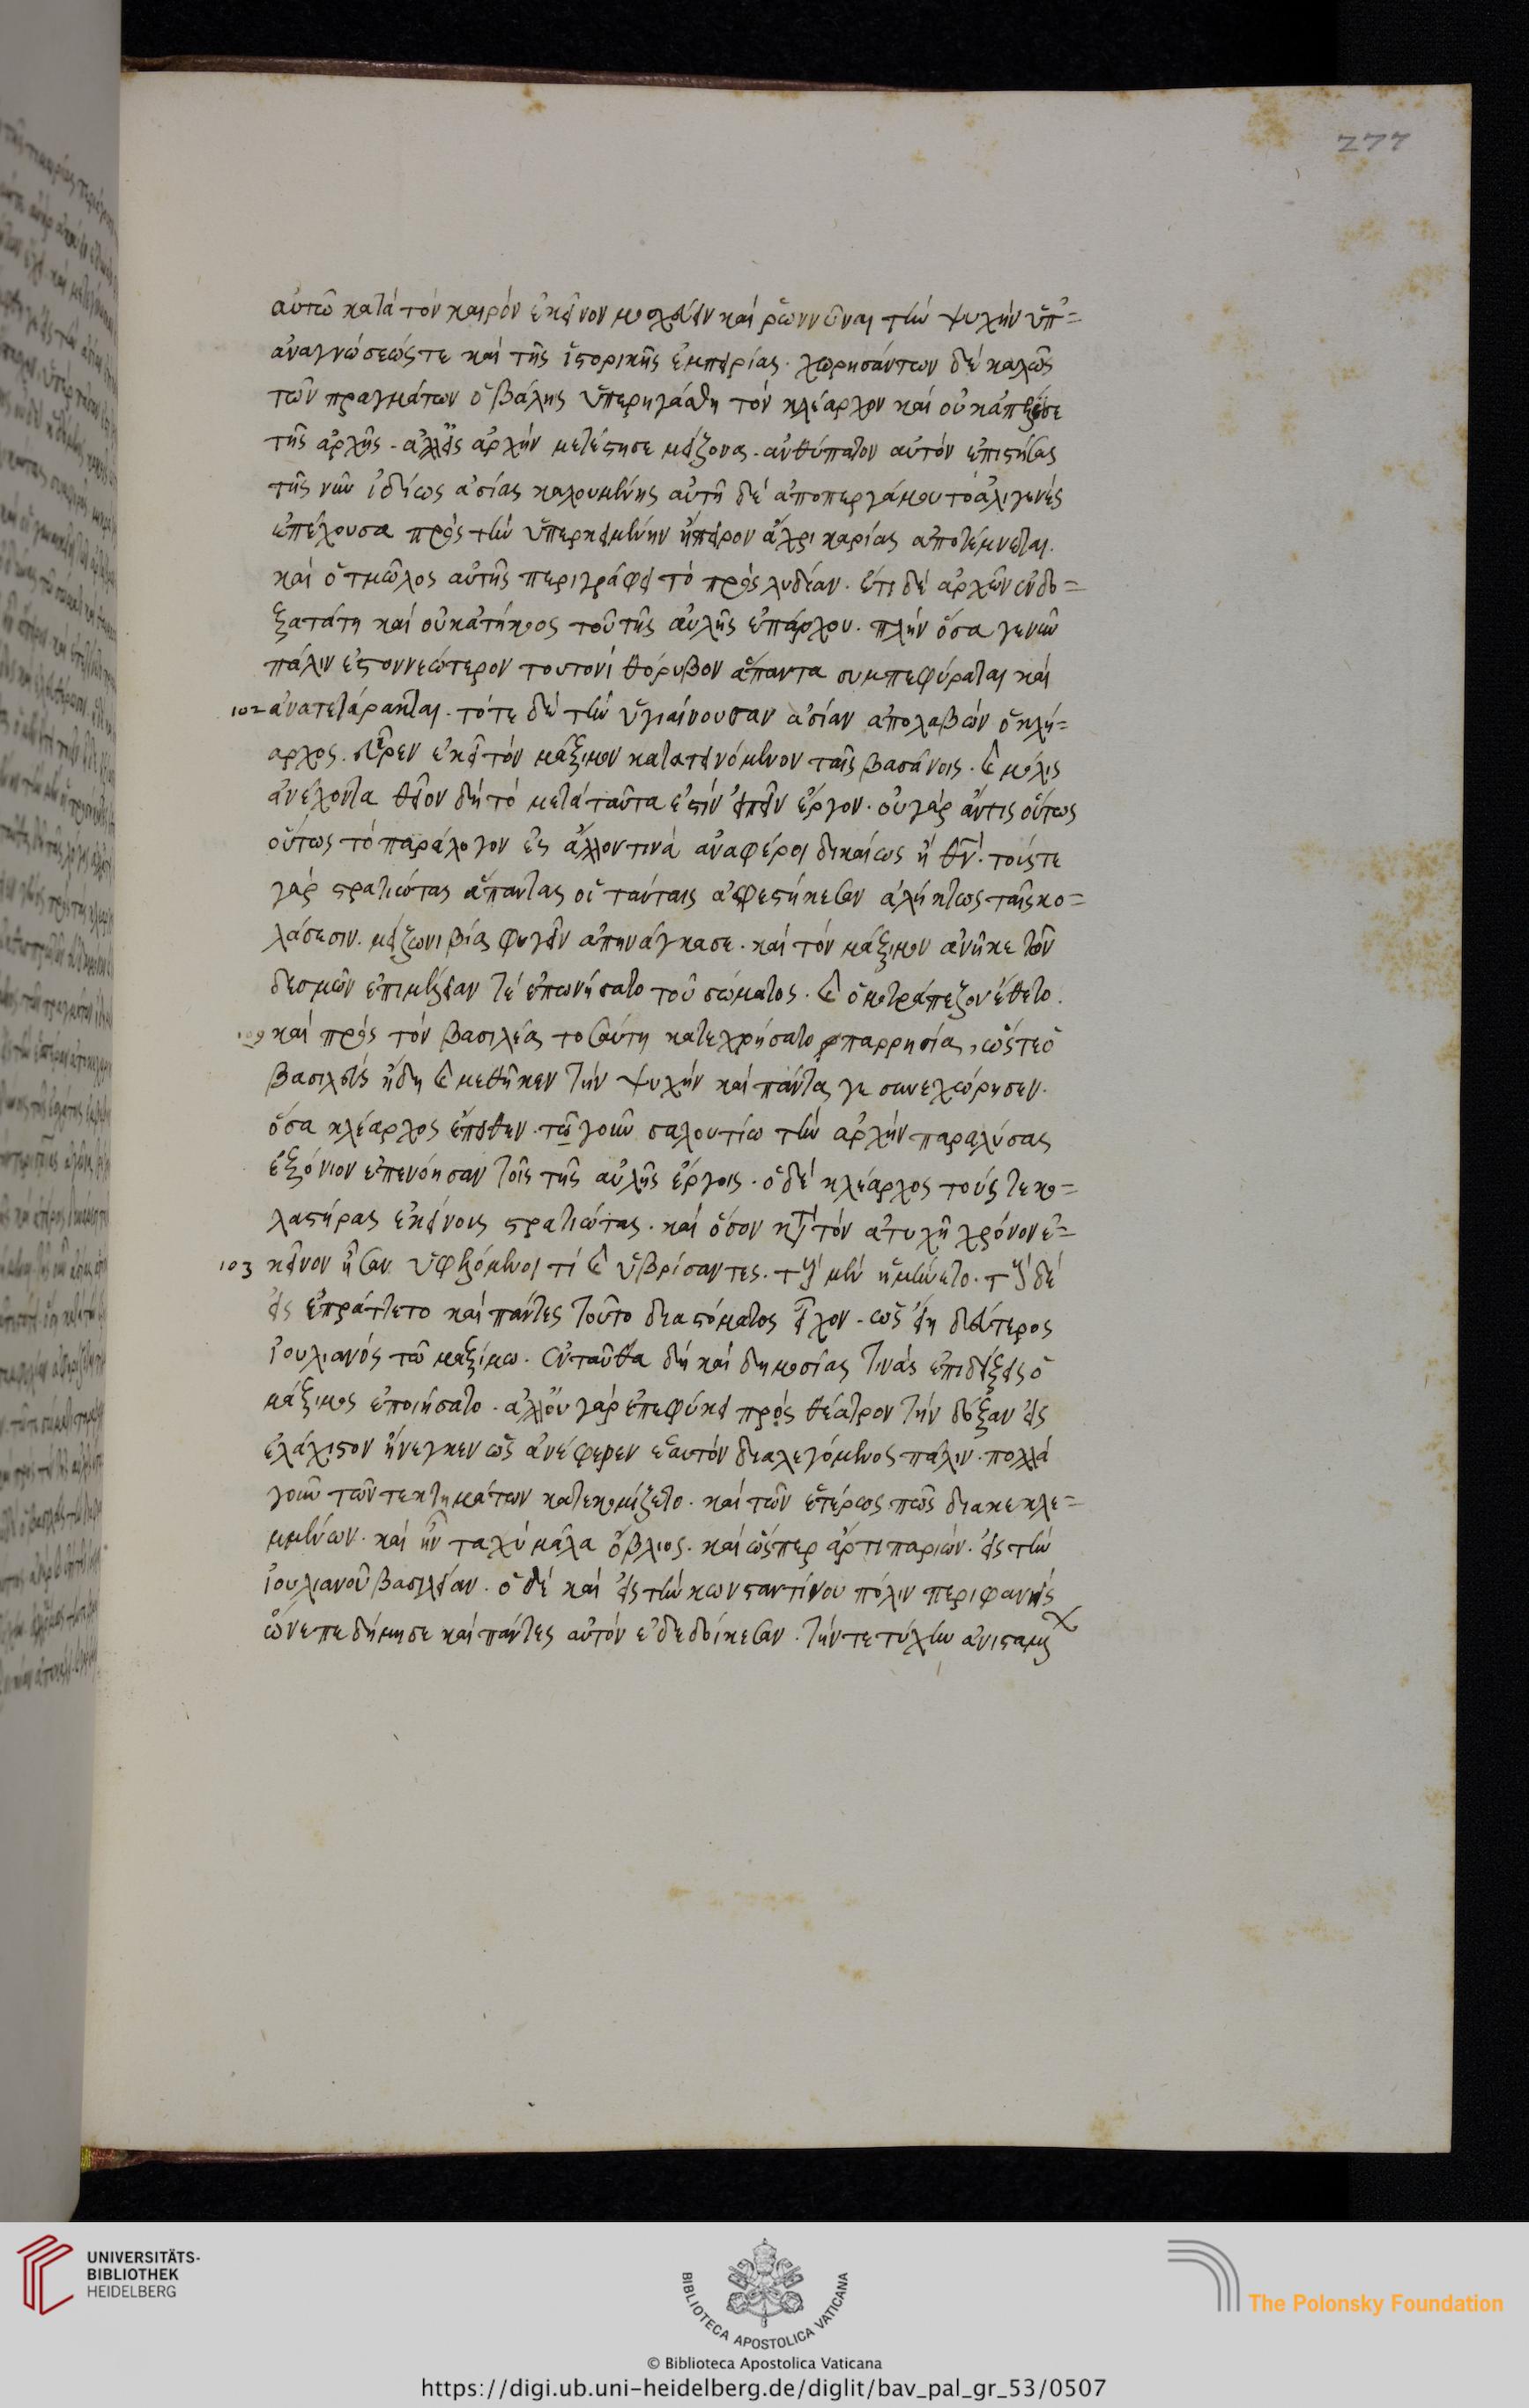 277
αὐτῶ κατὰ τὸν καιρὸν ἐκεῖνον μοχλεύειν καὶ ῥωννῦναι τὴν ψυχὴν ὑπ=
ἀναγνώσεώς τε καὶ τῆς ἱστορικῆς ἐμπειρίας. χωρησάντων δὲ καλῶς
τῶν πραγμάτων ὁ βάλης ὑπερηγάσθη τὸν κλέαρχον καὶ οὐκ ἀπέλυσε
τῆς ἀρχῆς. ἀλλ' εἰς ἀρχὴν μετέστησε μείζονα. ἀνθύπατον αὐτὸν ἐπιστήσας
τῆς νῦν ἰδίως ἀσίας καλουμένης αὐτὴ δὲ ἀπὸ περγάμου τὸ ἁλιγενὲς
ἐπέχουσα πρὸς τὴν ὑπερκειμένην ἤπειρον ἄχρι καρίας ἀποτέμνεται.
καὶ ὁ τμῶλος αὐτῆς περιγράφει τὸ πρὸς λυδίαν. ἔτι δὲ ἀρχῶν ἐνδο=
ξατάτη καὶ οὐ κατήκοος τοῦ τῆς αὐλῆς ἐπάρχου. πλὴν ὅσα γε νῦν
πάλιν ἐς τὸν νεώτερον τουτονὶ θόρυβον ἅπαντα συμπεφύραται καὶ
102 ἀνατετάρακται. τότε δὲ τὴν ὑγιαίνουσαν ἀσίαν ἀπολαβὼν ὁ κλέ=
αρχος. εὗρεν ἐκεῖ τὸν μάξιμον κατατεινόμενον ταῖς βασάνοις. καὶ μόλις
ἀνέχοντα θεῖον δὴ τὸ μετὰ ταῦτα ἐστὶν εἰπεῖν ἔργον. οὐ γὰρ ἄν τις οὕτως
οὕτως τὸ παράλογον ἐς ἄλλον τινὰ ἀναφέροι δικαίως ἢ θν. τούς τε
γὰρ στρατιώτας ἅπαντας οἳ ταύταις ἀφεστήκεσαν ἀλήκτως ταῖς κο=
λάσεσιν. μείζονι βίᾳ φυγεῖν ἀπηνάγκασε. καὶ τὸν μάξιμον ἀνῆκε τῶν
δεσμῶν ἐπιμέλειάν τε ἐπονήσατο τοῦ σώματος. καὶ ὁμοτράπεζον ἔθετο.
109 καὶ πρὸς τὸν βασιλέα τοσαύτη κατεχρήσατο παρρησίᾳ, ὥστε ὁ
βασιλεὺς ἤδη καὶ μεθῆκεν τὴν ψυχὴν καὶ πάντα γε συνεχώρησεν.
ὅσα κλέαρχος ἔπειθεν. τῶ γοῦν σαλουτίω τὴν ἀρχὴν παραλύσας
ἐξόνιον ἐπενόησαν τοῖς τῆς αὐλῆς ἔργοις. ὁ δὲ κλέαρχος τούς τε κο=
λαστήρας ἐκείνους στρατιώτας. καὶ ὅσον κατὰ τὸν ἀτυχῆ χρόνον ἐ=
103 κεῖνον ἦσαν ὑφελόμενοι τὶ καὶ ὑβρίσαντες. τοὺς μὲν ἠμύνετο. τοὺς δὲ
εἰς ἐπράττετο καὶ πάντες τοῦτο διὰ στόματος εἶχον. ὡς εἴη δεύτερος
ἰουλιανὸς τῶ μαξίμω. ἐνταῦθα δὴ καὶ δημοσίας τινὰς ἐπιδείξεις ὁ
μάξιμος ἐποιήσατο. ἀλλ' οὐ γὰρ ἐπεφύκει πρὸς θέατρον τὴν δόξαν εἰς
ἐλάχιστον ἤνεγκεν ὡς ἀνέφερεν ἑαυτὸν διαλεγόμενος πάλιν. πολλὰ
γοῦν τῶν τε κτημάτων κατεκομίζετο. καὶ τῶν ἑτέρως πως διακεκλε=
μμένων. καὶ ἦν ταχὺ μάλα ὄβλιος. καὶ ὥσπερ ἄρτι παριὼν. εἰς τὴν
ἰουλιανοῦ βασιλείαν. ὁ δὲ καὶ εἰς τὴν κωνσταντίνου πόλιν περιφανὴς
ὢν ἐπεδήμησε καὶ πάντες αὐτὸν ἐδεδοίκεσαν. τήν τε τύχην ἀνισταμέ
UNIVERSITÄTS-
BIBLIOTHEK
HEIDELBERG
BIBLIOTECA APOSTOLICA VATICANA
The Polonsky Foundation
© Biblioteca Apostolica Vaticana
https://digi.ub.uni-heidelberg.de/diglit/bav_pal_gr_53/0507